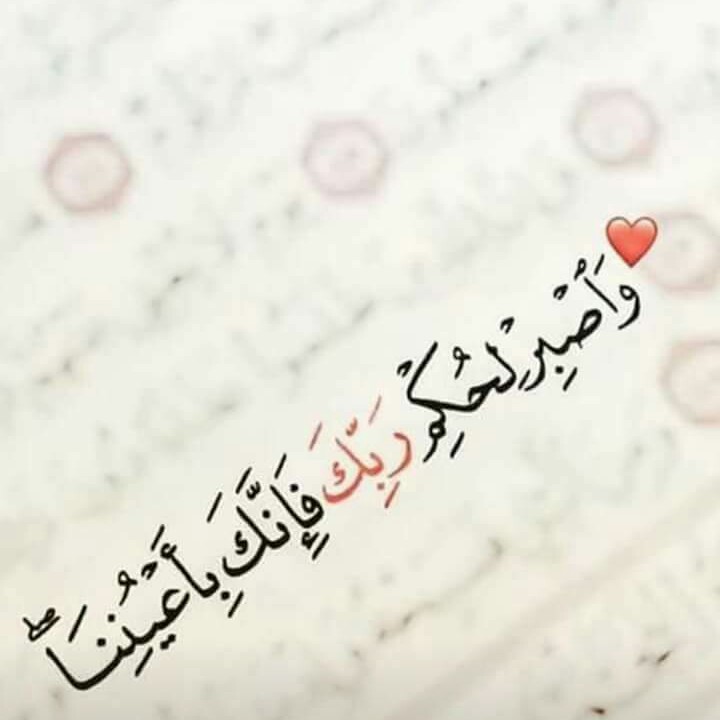 وَٱصۡبِرۡ لِحُكۡمِ رَبِّكَ فَإِنَّكَ بِأَعۡيُنِنَاۖ